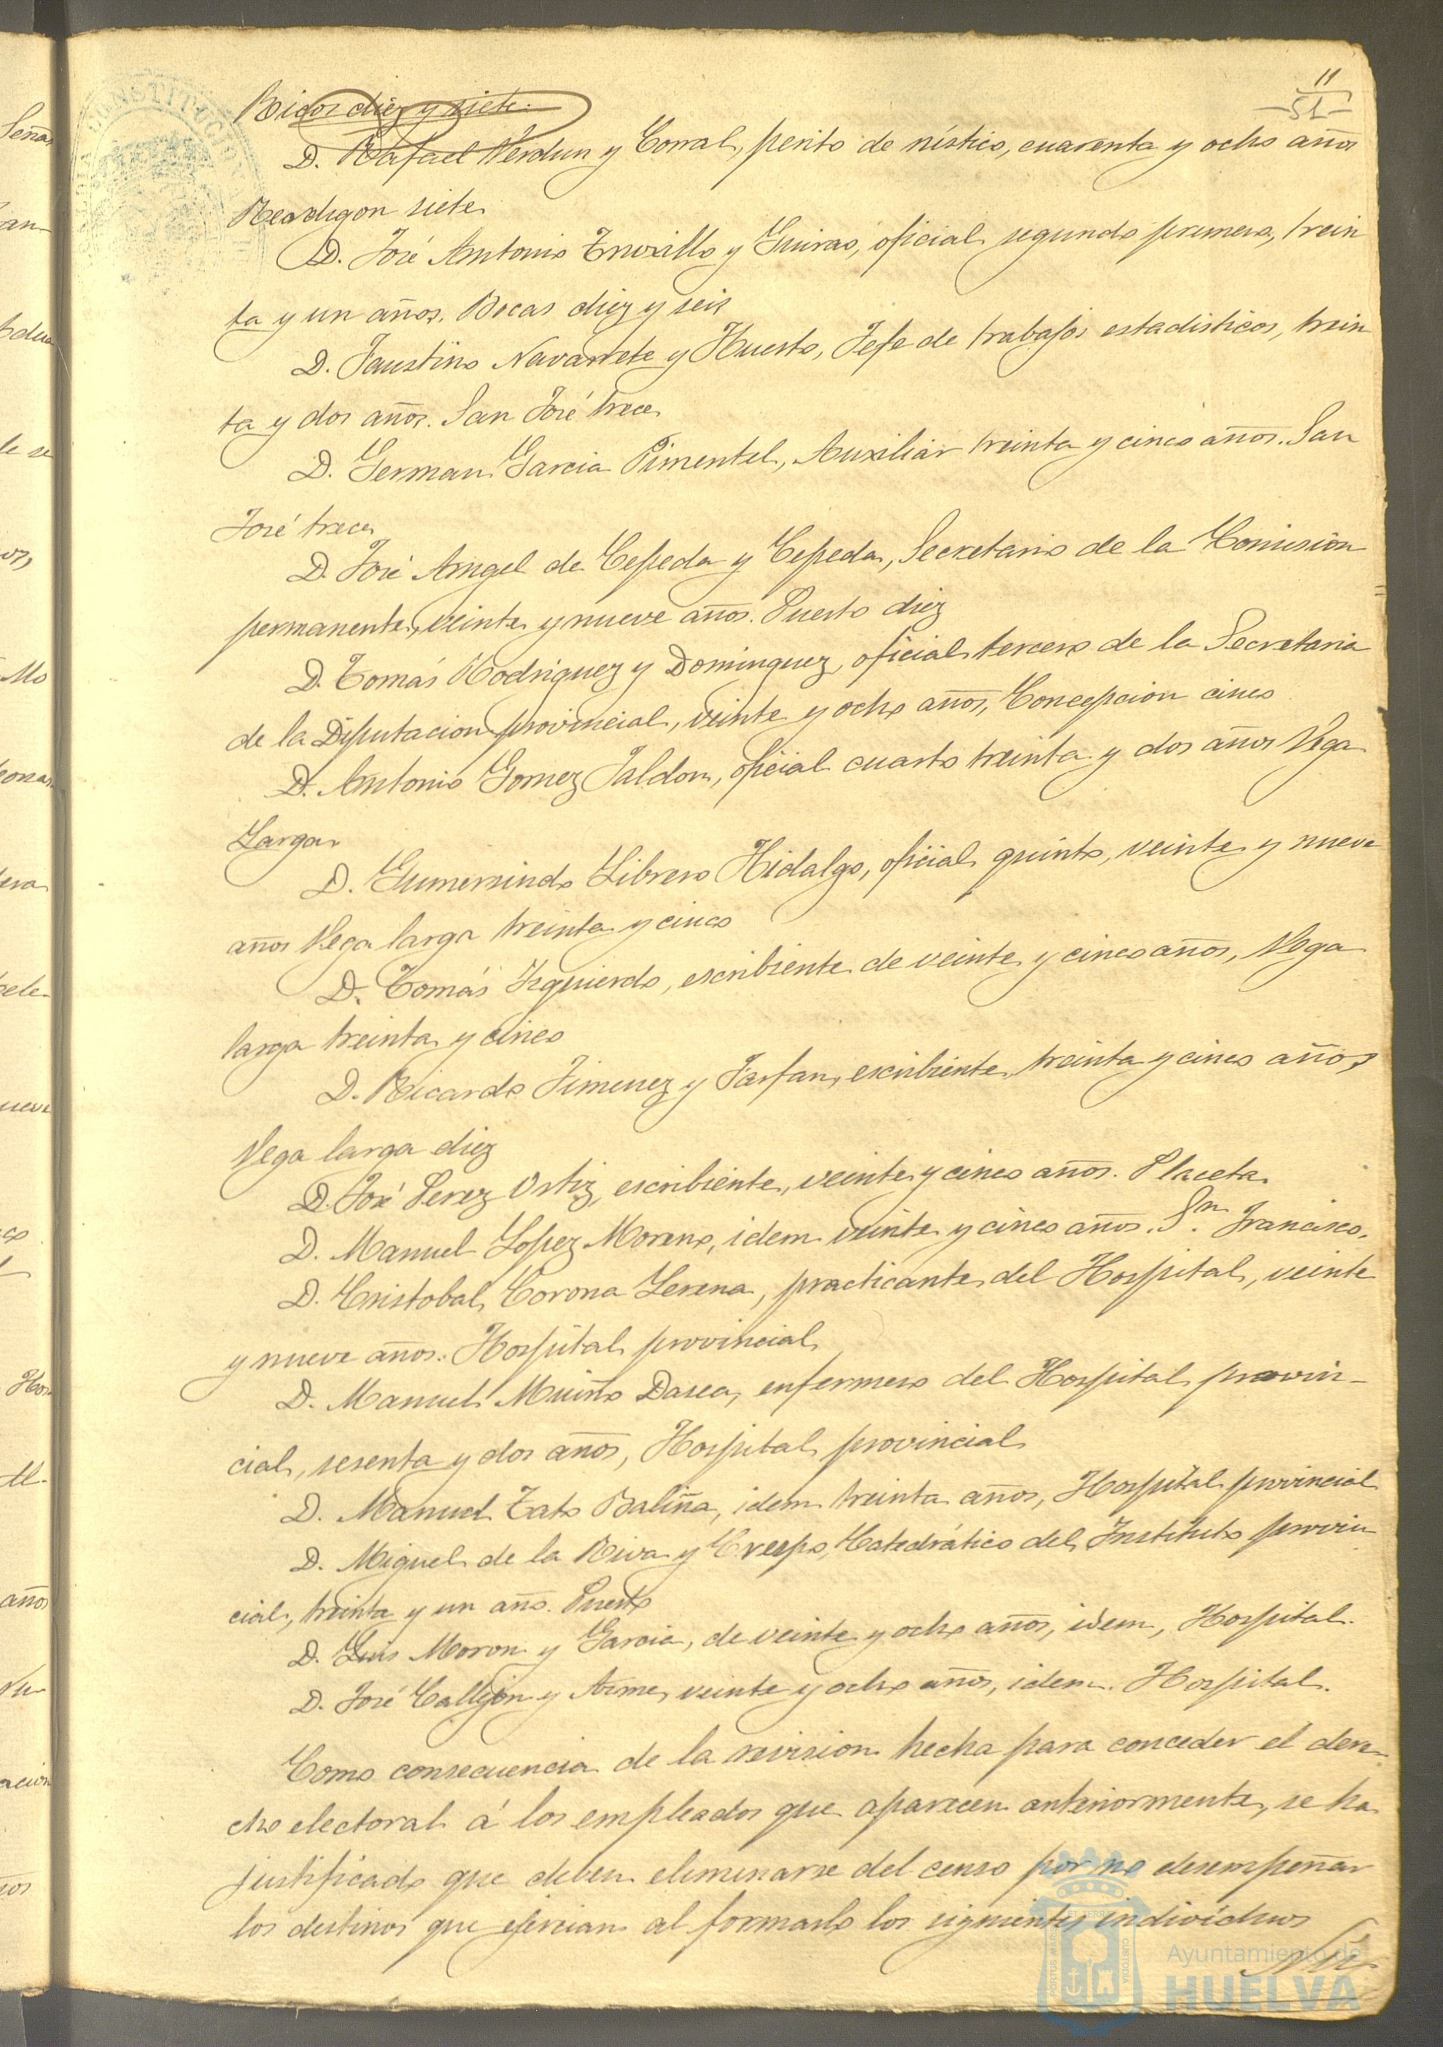 11
-51-
Ricos diez y siete.
D. Rafael Verdun y Corral, perito de rústico, cuarenta y ocho años
siete
D. José Antonio Truxillo y Guirao, oficial segundo primero, trein
ta y un años. Bocas diez y seis
D. Faustino Navarrete y Huerto, Jefe de trabajos estadisticos, trein
ta y dos años. San José trece
D. German Garcia Pimentel, Auxiliar treinta y cinco años. San
José trece
D. José Amgel de Cepeda y Cepeda, Secretario de la Comision
permanente, veinte y nueve años. Puerto diez
D. Tomás Rodriguez y Dominguez, oficial tercero de la Secretaria
de la Diputacion provincial, veinte y ocho años, Concepcion cinco
D. Antonio Gomez Jaldon, oficial cuarto treinta y dos años Vega
Larga
D. Gumersindo Librero Hidalgo, oficial quinto, veinte y nueve
años Vega larga treinta y cinco
D. Tomás Izquierdo, escribiente de veinte y cinco años, Vega
larga treinta y cinco
D. Ricardo Jimenez y Farfan, escribiente, treinta y cinco años,
Vega larga diez
D. José Perez Ortiz, escribiente, veinte y cinco años. Placeta
D. Manuel Lopez Moreno, idem veinte y cinco años. Sn. Francisco.
D. Cristobal Corona Lerena, practicante del Hospital, veinte
y nueve años. Hospital provincial
D. Manuel Muiño Dasea, enfermero del Hospital provin-
cial, sesenta y dos años, Hospital provincial
D. Manuel Tato Baliña, idem treinta años, Hospital provincial
D. Miguel de la Riva y Crespo, Catedrático del Instituto provin
cial, treinta y un año. Puerto
D. Luis Moron y Garcia, de veinte y ocho años, idem, Hospital.
D. José Callejon y Asme, veinte y ocho años, idem. Hospital.
Como consecuencia de la revision hecha para conceder el dere-
cho electoral á los empleados que aparecen anteriormente, se ha
justificado que deben eliminarse del censo por no desempeñar
los destinos que ejercian al formarlo los siguientes individuos
Ayuntamiento de
HUELVA